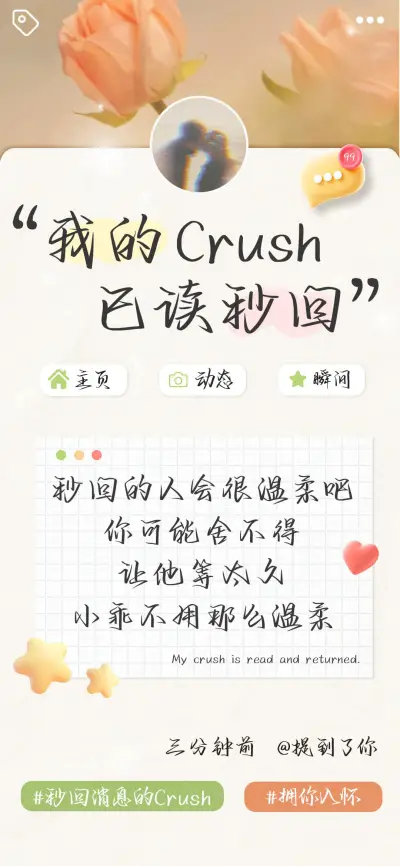 99
“我的Crush
已读秒回”
主页 动态 瞬间
秒回的人会很温柔吧
你可能舍不得
让他等太久
小乖不用那么温柔
My crush is read and returned.
三分钟前 @提到了你
#秒回消息的Crush #拥你入怀